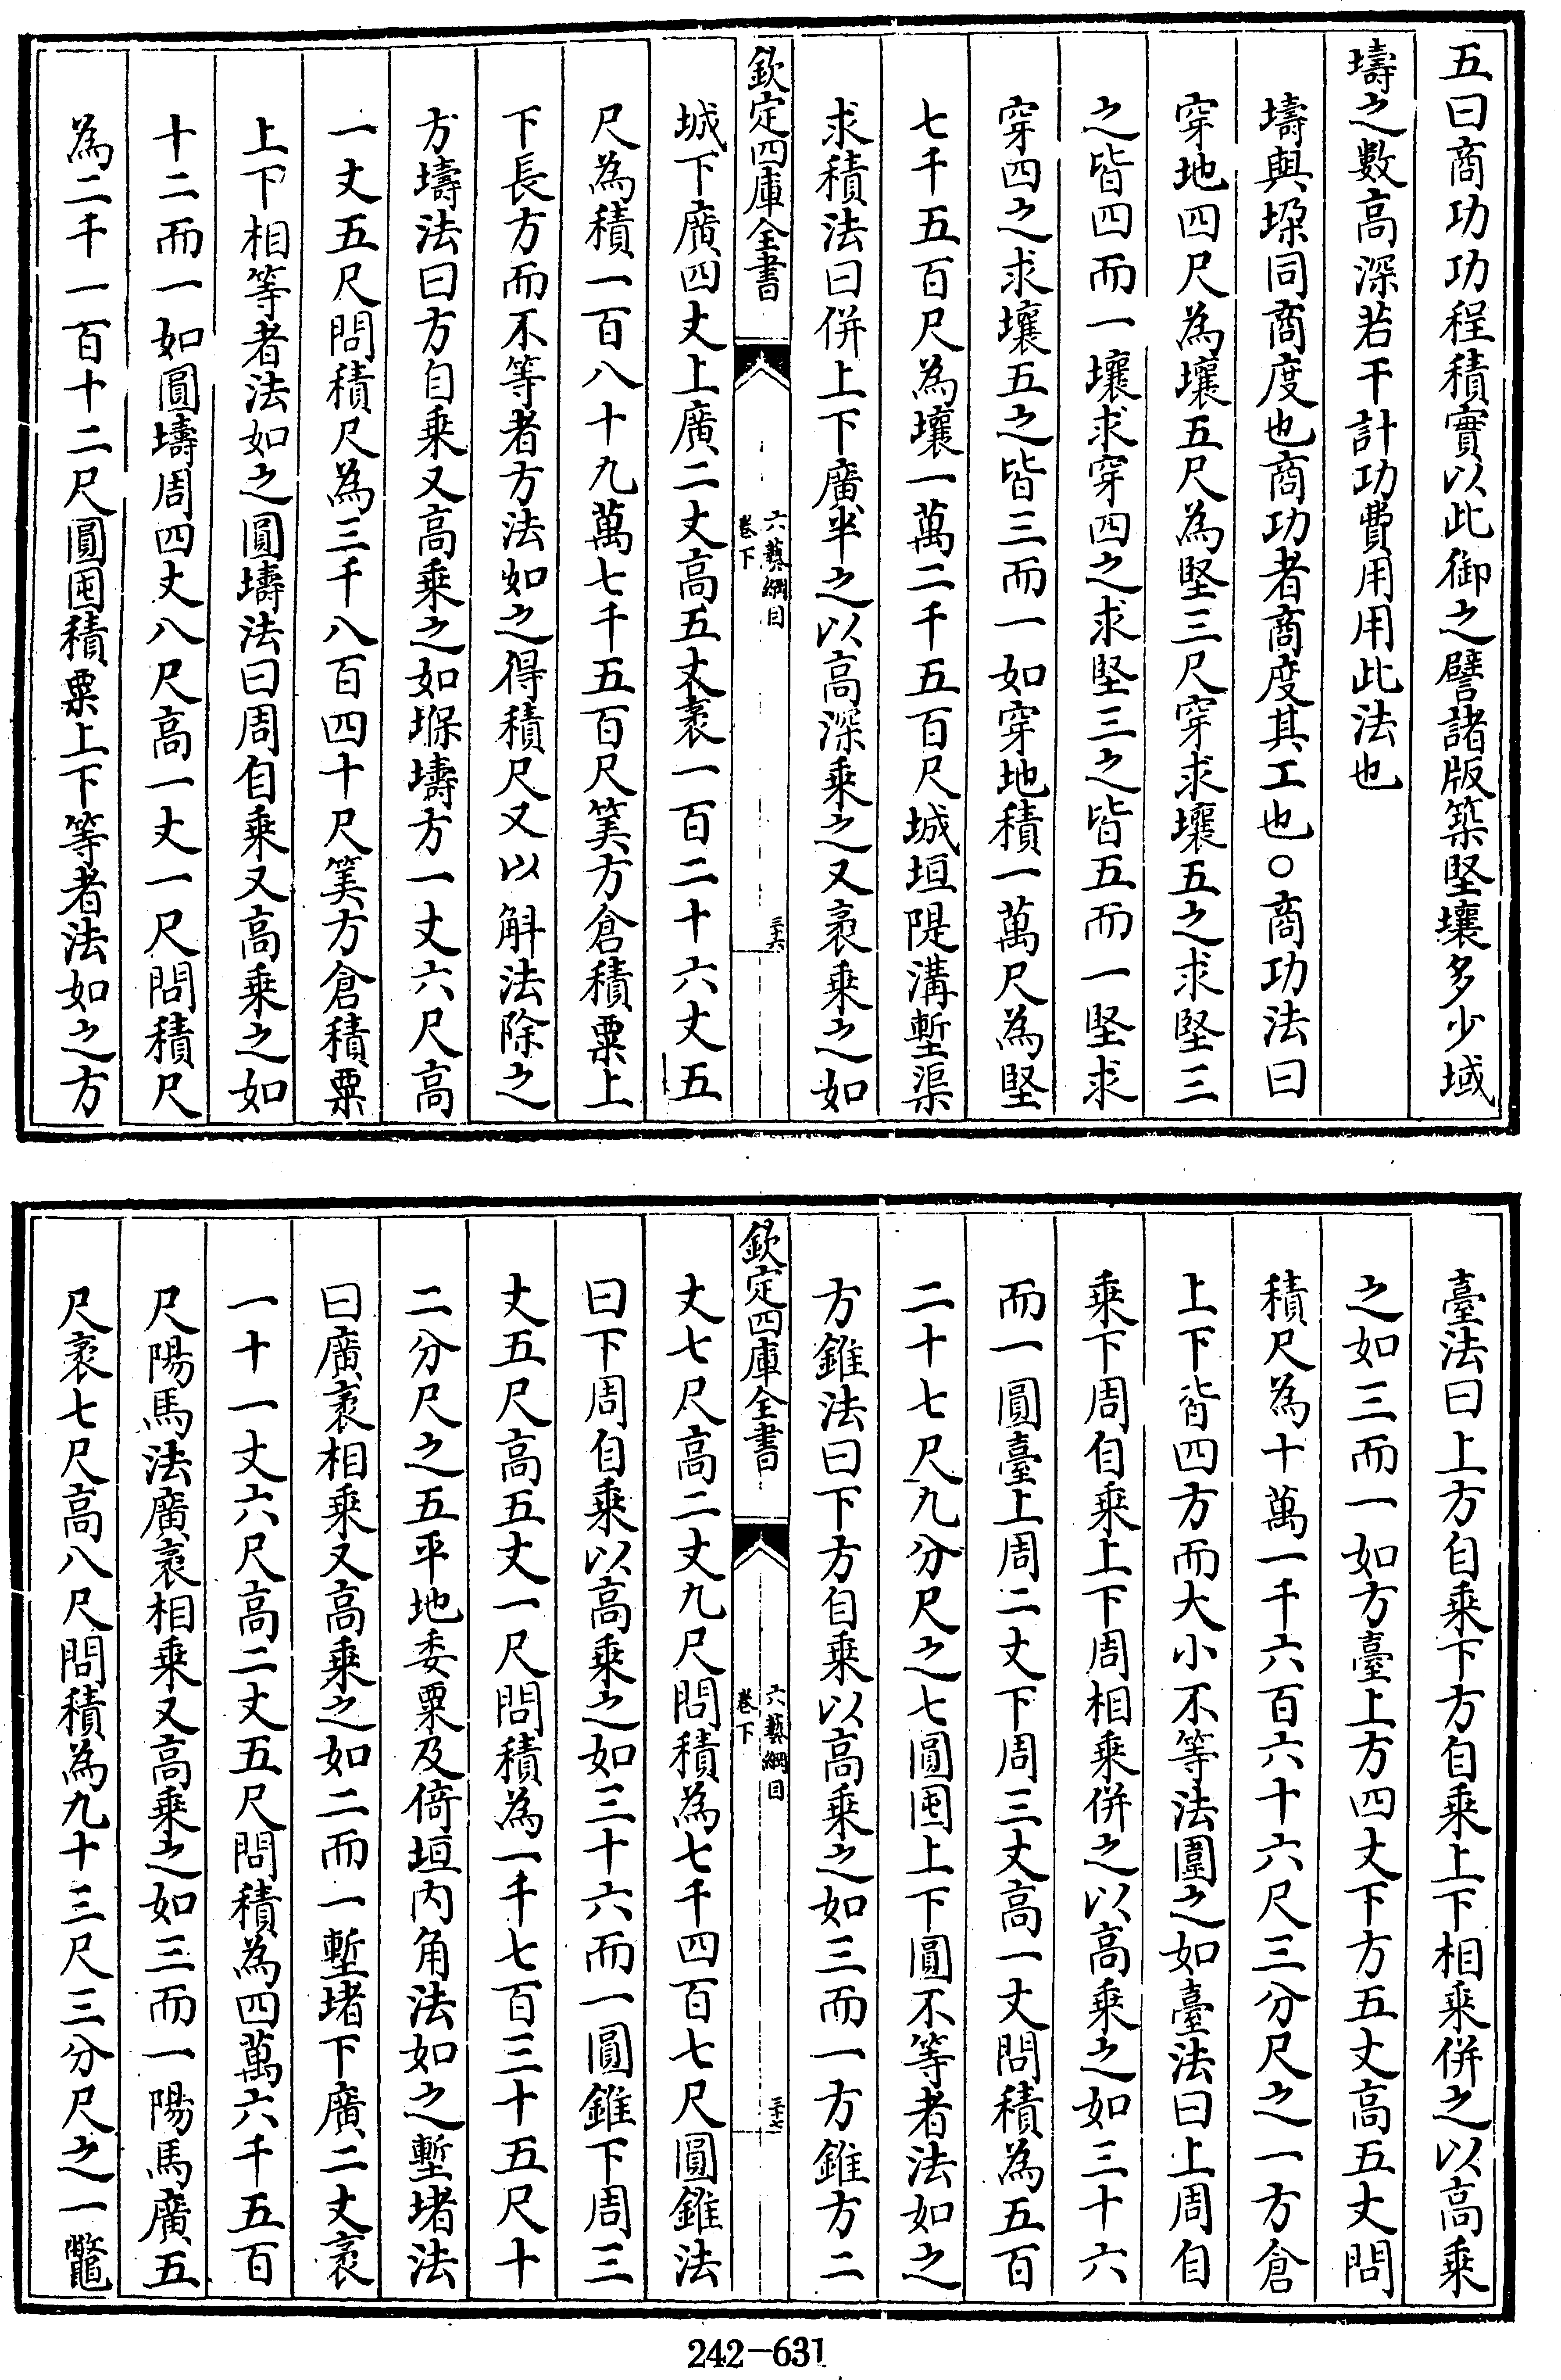 五曰商功功程積實以此御之譬諸版築堅壤多少域
壔之數高深若干計功費用用此法也
壔與垜同商度也商功者商度其工也○商功法曰
穿地四尺為壤五尺為堅三尺穿求壤五之求堅三
之皆四而一壤求穿四之求堅三之皆五而一堅求
穿四之求壤五之皆三而一如穿地積一萬尺為堅
七千五百尺為壤一萬二千五百尺城垣隄溝塹渠
求積法曰併上下廣半之以高深乘之又袤乘之如
欽定四庫全書
六藝綱目
卷下
三十六
城下廣四丈上廣二丈高五丈袤一百二十六丈五
尺為積一百八十九萬七千五百尺筭方倉積粟上
下長方而不等者方法如之得積尺又以斛法除之
方壔法曰方自乘又高乘之如堢壔方一丈六尺高
一丈五尺問積尺為三千八百四十尺筭方倉積粟
上下相等者法如之圓壔法曰周自乘又高乘之如
十二而一如圓壔周四丈八尺高一丈一尺問積尺
為二千一百十二尺圓囤積粟上下等者法如之方
臺法曰上方自乘下方自乘上下相乘併之以高乘
之如三而一如方臺上方四丈下方五丈高五丈問
積尺為十萬一千六百六十六尺三分尺之一方倉
上下皆四方而大小不等法圍之如臺法曰上周自
乘下周自乘上下周相乘併之以高乘之如三十六
而一圓臺上周二丈下周三丈高一丈問積為五百
二十七尺九分尺之七圓囤上下圓不等者法如之
方錐法曰下方自乘以高乘之如三而一方錐方二
欽定四庫全書
六藝綱目
卷下
三十七
丈七尺高二丈九尺問積為七千四百七尺圓錐法
曰下周自乘以高乘之如三十六而一圓錐下周三
丈五尺高五丈一尺問積為一千七百三十五尺十
二分尺之五平地委粟及倚垣内角法如之塹堵法
曰廣袤相乘又高乘之如二而一塹堵下廣二丈袤
一十一丈六尺高二丈五尺問積為四萬六千五百
尺陽馬法廣袤相乘又高乘之如三而一陽馬廣五
尺袤七尺高八尺問積為九十三尺三分尺之一鼈
242-631